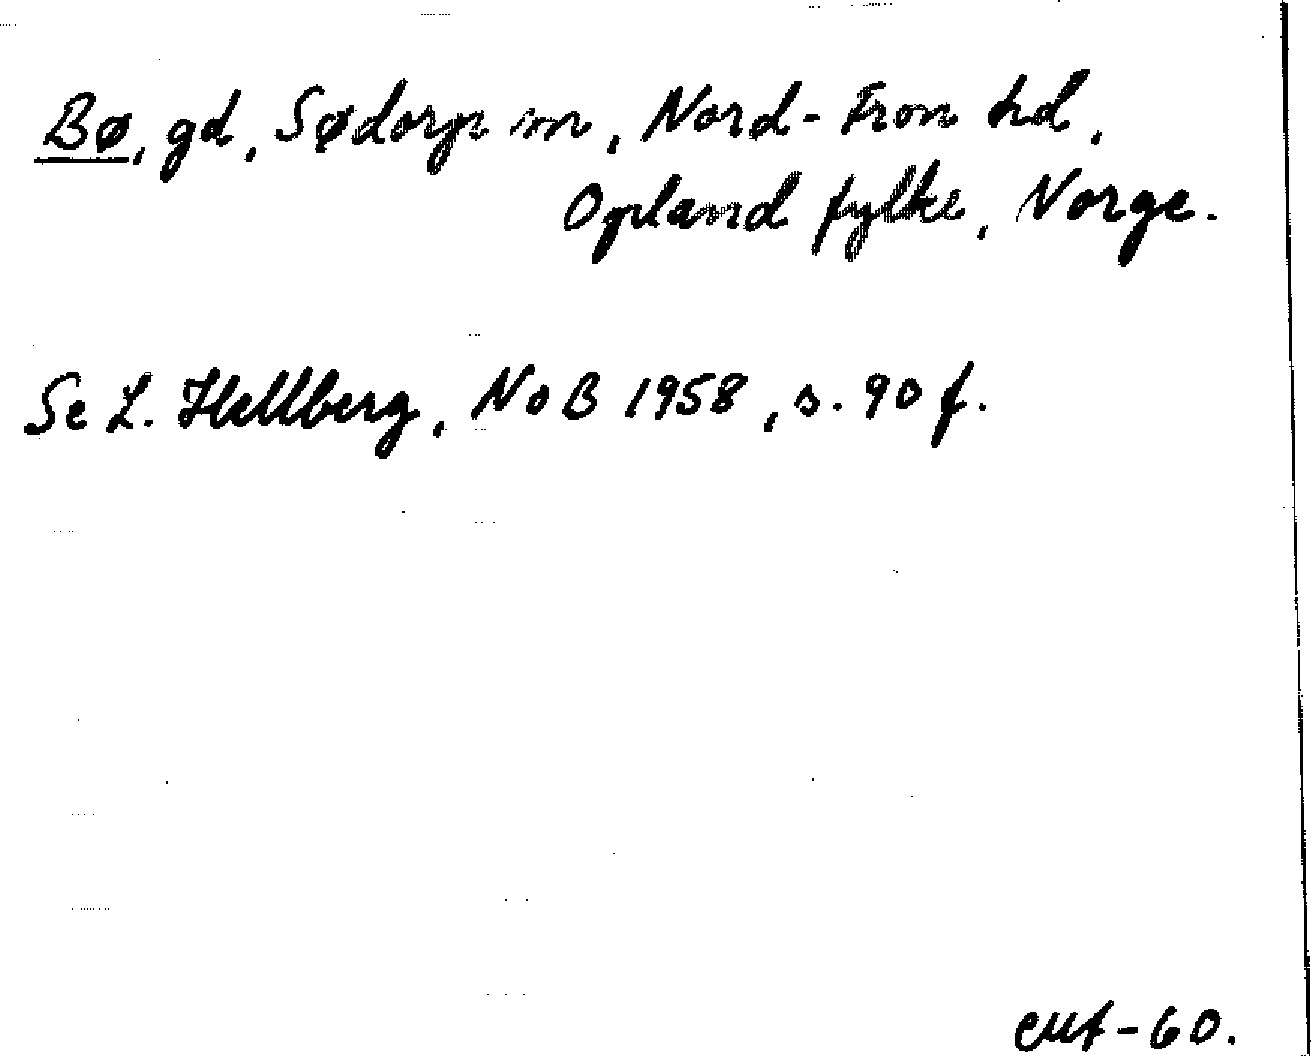 Bø, gd, Sødorp sn, Nord-Fron hd,
Opland fylke, Norge.
Se L. Hellberg, NoB 1958, s. 90 f.
-60.